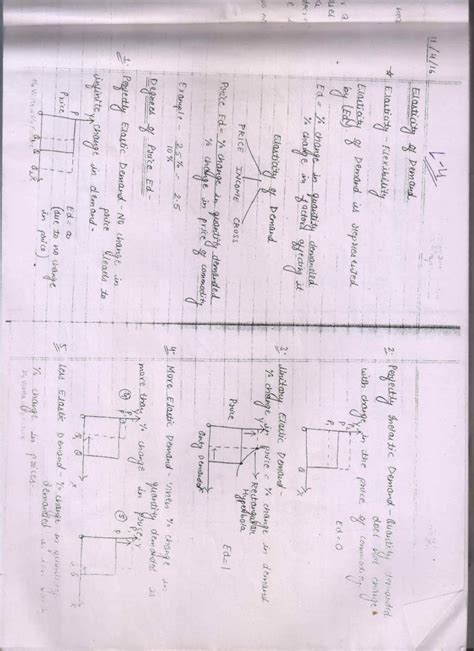 11/4/16
L-4
Elasticity of Demand
* Elasticity - Flexibility
Elasticity of Demand is represented
by (Ed)
Ed = % change in quantity demanded
% change in factors affecting it
Elasticity of Demand
PRICE INCOME CROSS
Price Ed = % change in quantity demanded
% change in price of commodity
Example - 25% 2.5
10%
Degrees of Price Ed
1. Perfectly Elastic Demand - No change in
price leads to
infinite change in demand.
Price
P
Ed = ∞
(due to no change
in price).
X
2. Perfectly Inelastic Demand - Quantity demanded
does not change
with change in the price of commodity
Y
P
P1
Ed = 0
O
X
3. Unitary Elastic Demand -
% change in price = % change in demand
Price
Rectangular
Hyperbola
Ed = 1
Demand
4. More Elastic Demand - When % change in
quantity demanded is
more than % change in price
④ P
⑤
O
X
5. Less Elastic Demand - % change in quantity
demanded is
% change in price.